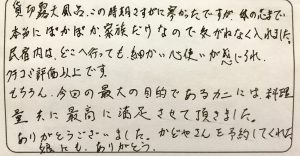 貸切露天風呂、この時期さすがに寒かったですが、体の芯まで
本当にぽかぽか家族だけなので気がねなく入れました。
民宿内は、どこへ行っても、細かい心使いが感じられ、
クチコミ評価以上です。
もちろん、今回の最大の目的であるカニは、料理
量共に最高に満足させて頂きました。
ありがとうございました。かどやさんを予約してくれた
娘にも、ありがとう。